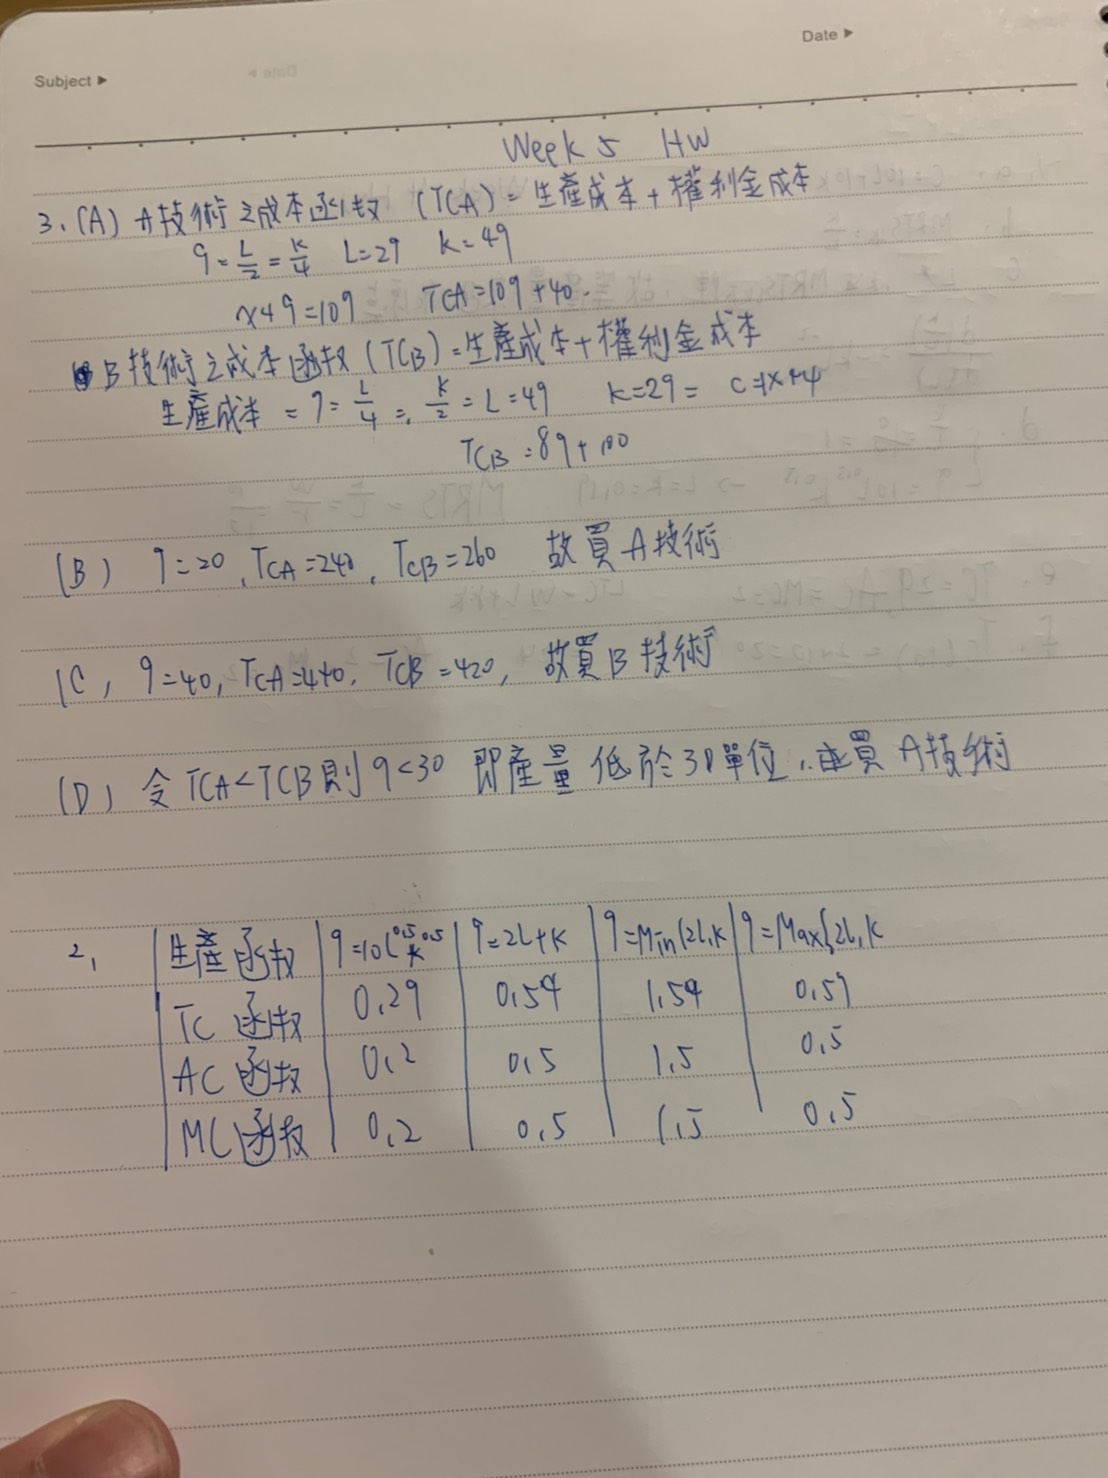 Subject ▶
Date ▶
Week 5 HW
3. (A) A技術之成本函數 (TCA) = 生產成本 + 權利金成本
q = L/2 = K/4 L=2q K=4q
x4q=10q TCA=10q+40
B技術之成本函数 (TCB) = 生產成本 + 權利金成本
生產成本 = q = L/4 = K/2 = L=4q K=2q =
TCB=8q+100
(B) q=20, TCA=240, TCB=260 故買A技術
(C, q=40, TCA=440, TCB=420, 故買B技術
(D) 令TCA<TCB則q<30 即產量低於30單位, 買A技術
2, 生產函数 q=10L^0.5 K^0.5 q=2L+K q=Min(2L,K q=Max{2L,K
TC函数 0.2q 0.5q 1.5q 0.5q
AC函数 0.2 0.5 1.5 0.5
MC函数 0.2 0.5 1.5 0.5